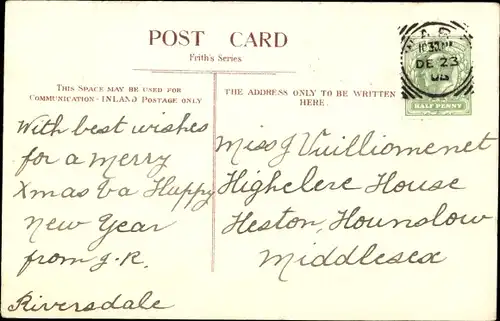 POST CARD
Frith's Series
THIS SPACE MAY BE USED FOR
COMMUNICATION - INLAND POSTAGE ONLY
THE ADDRESS ONLY TO BE WRITTEN
HERE.
With best wishes
for a merry
Xmas & a Happy
New Year
from J.R.
Riversdale
Miss J Vuilliomenet
Highclere House
Heston, Hounslow
Middlesex
DE 23
HALF PENNY